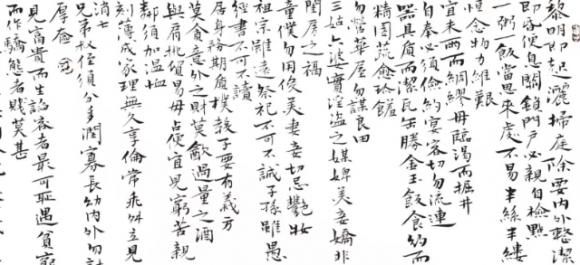 黎明即起灑掃庭除要內外整潔
即昏便息關鎖門戶必親自檢點
一粥一飯當思來處不易半絲半縷
恆念物力維艱
宜未雨而綢繆毋臨渴而掘井
自奉必須儉約宴客切勿流連
器具質而潔瓦缶勝金玉飲食約而
精園蔬愈珍饈
勿營華屋勿謀良田
三姑六婆實淫盜之媒婢美妾嬌非
閨房之福
童僕勿用俊美妻妾切忌艷妝
祖宗雖遠祭祀不可不誠子孫雖愚
經書不可不讀
居身務期質樸教子要有義方
莫貪意外之財莫飲過量之酒
與肩挑貿易毋占便宜見窮苦親
鄰須加溫恤
刻薄成家理無久享倫常乖舛立見
消亡
兄弟叔侄須分多潤寡長幼內外勿計
厚愈
見富貴而生諂容者最可恥遇貧窮
而作驕態者賤莫甚